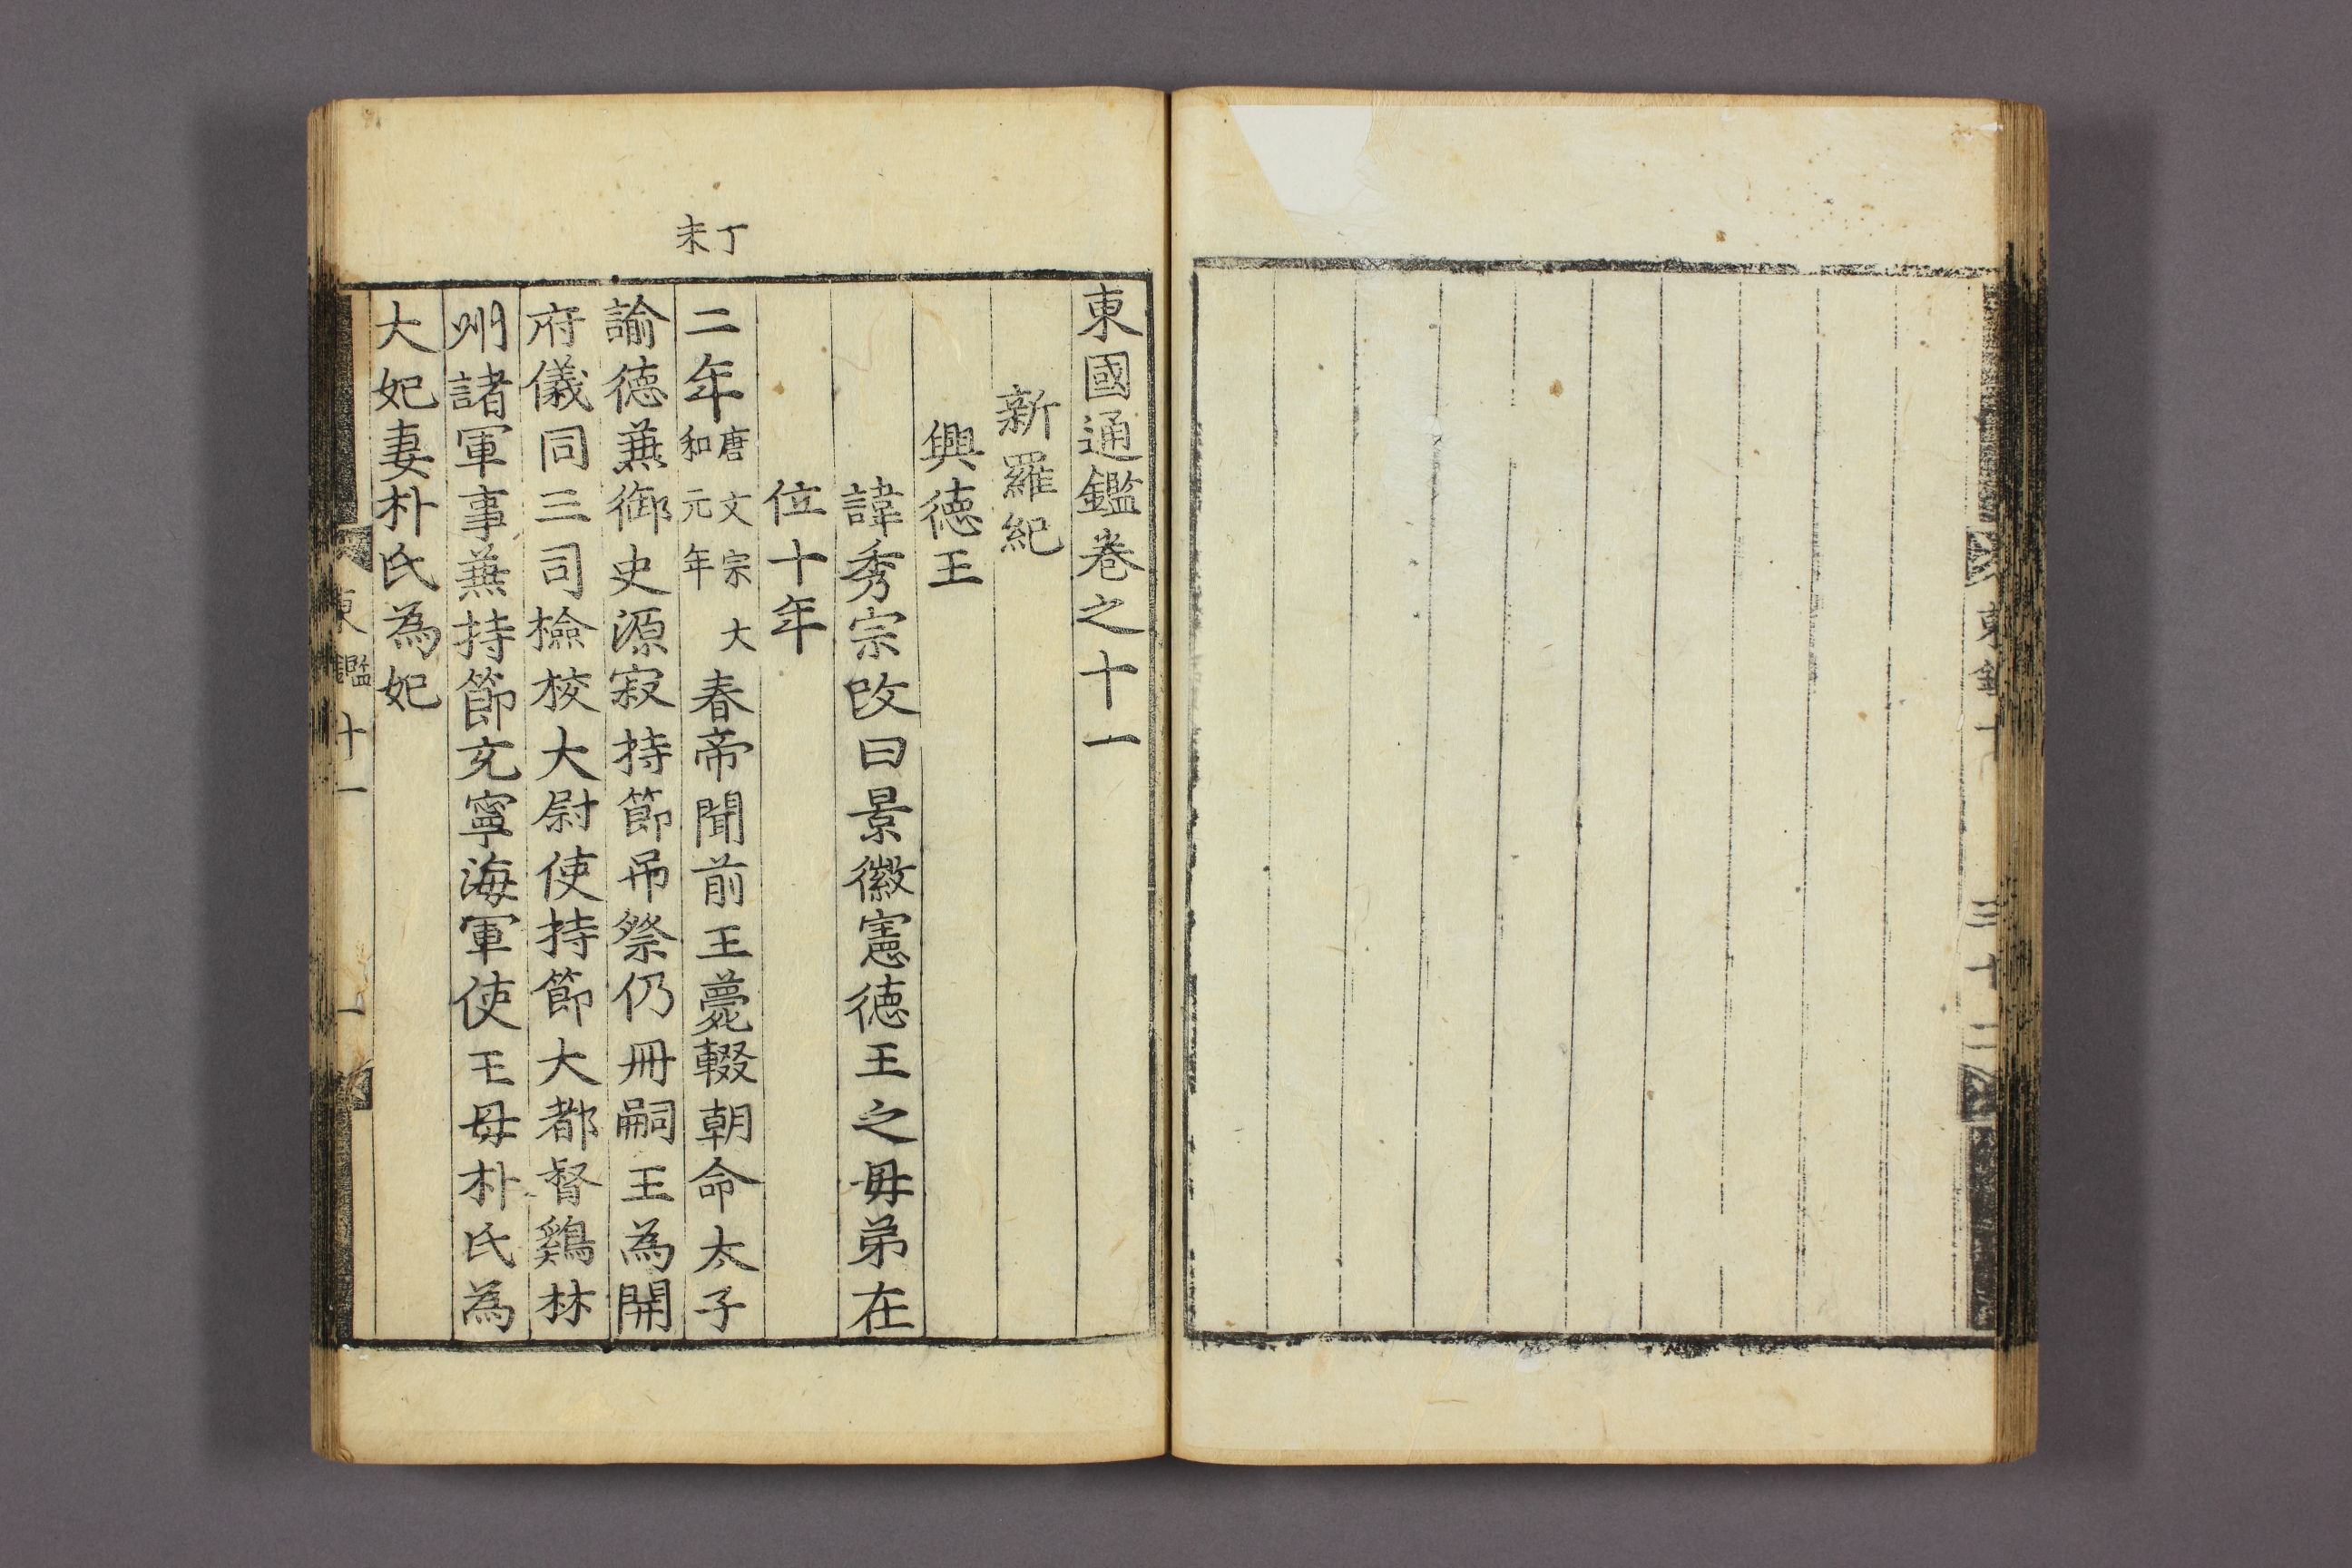 東鑑十
三十二
東國通鑑卷之十一
新羅紀
興德王
諱秀宗改曰景徽憲德王之母弟在
位十年
丁未
二年唐文宗大和元年春帝聞前王薨輟朝命太子
諭德兼御史源寂持節吊祭仍冊嗣王為開
府儀同三司檢校大尉使持節大都督鷄林
州諸軍事兼持節充寧海軍使王母朴氏為
大妃妻朴氏為妃
東鑑十一 一